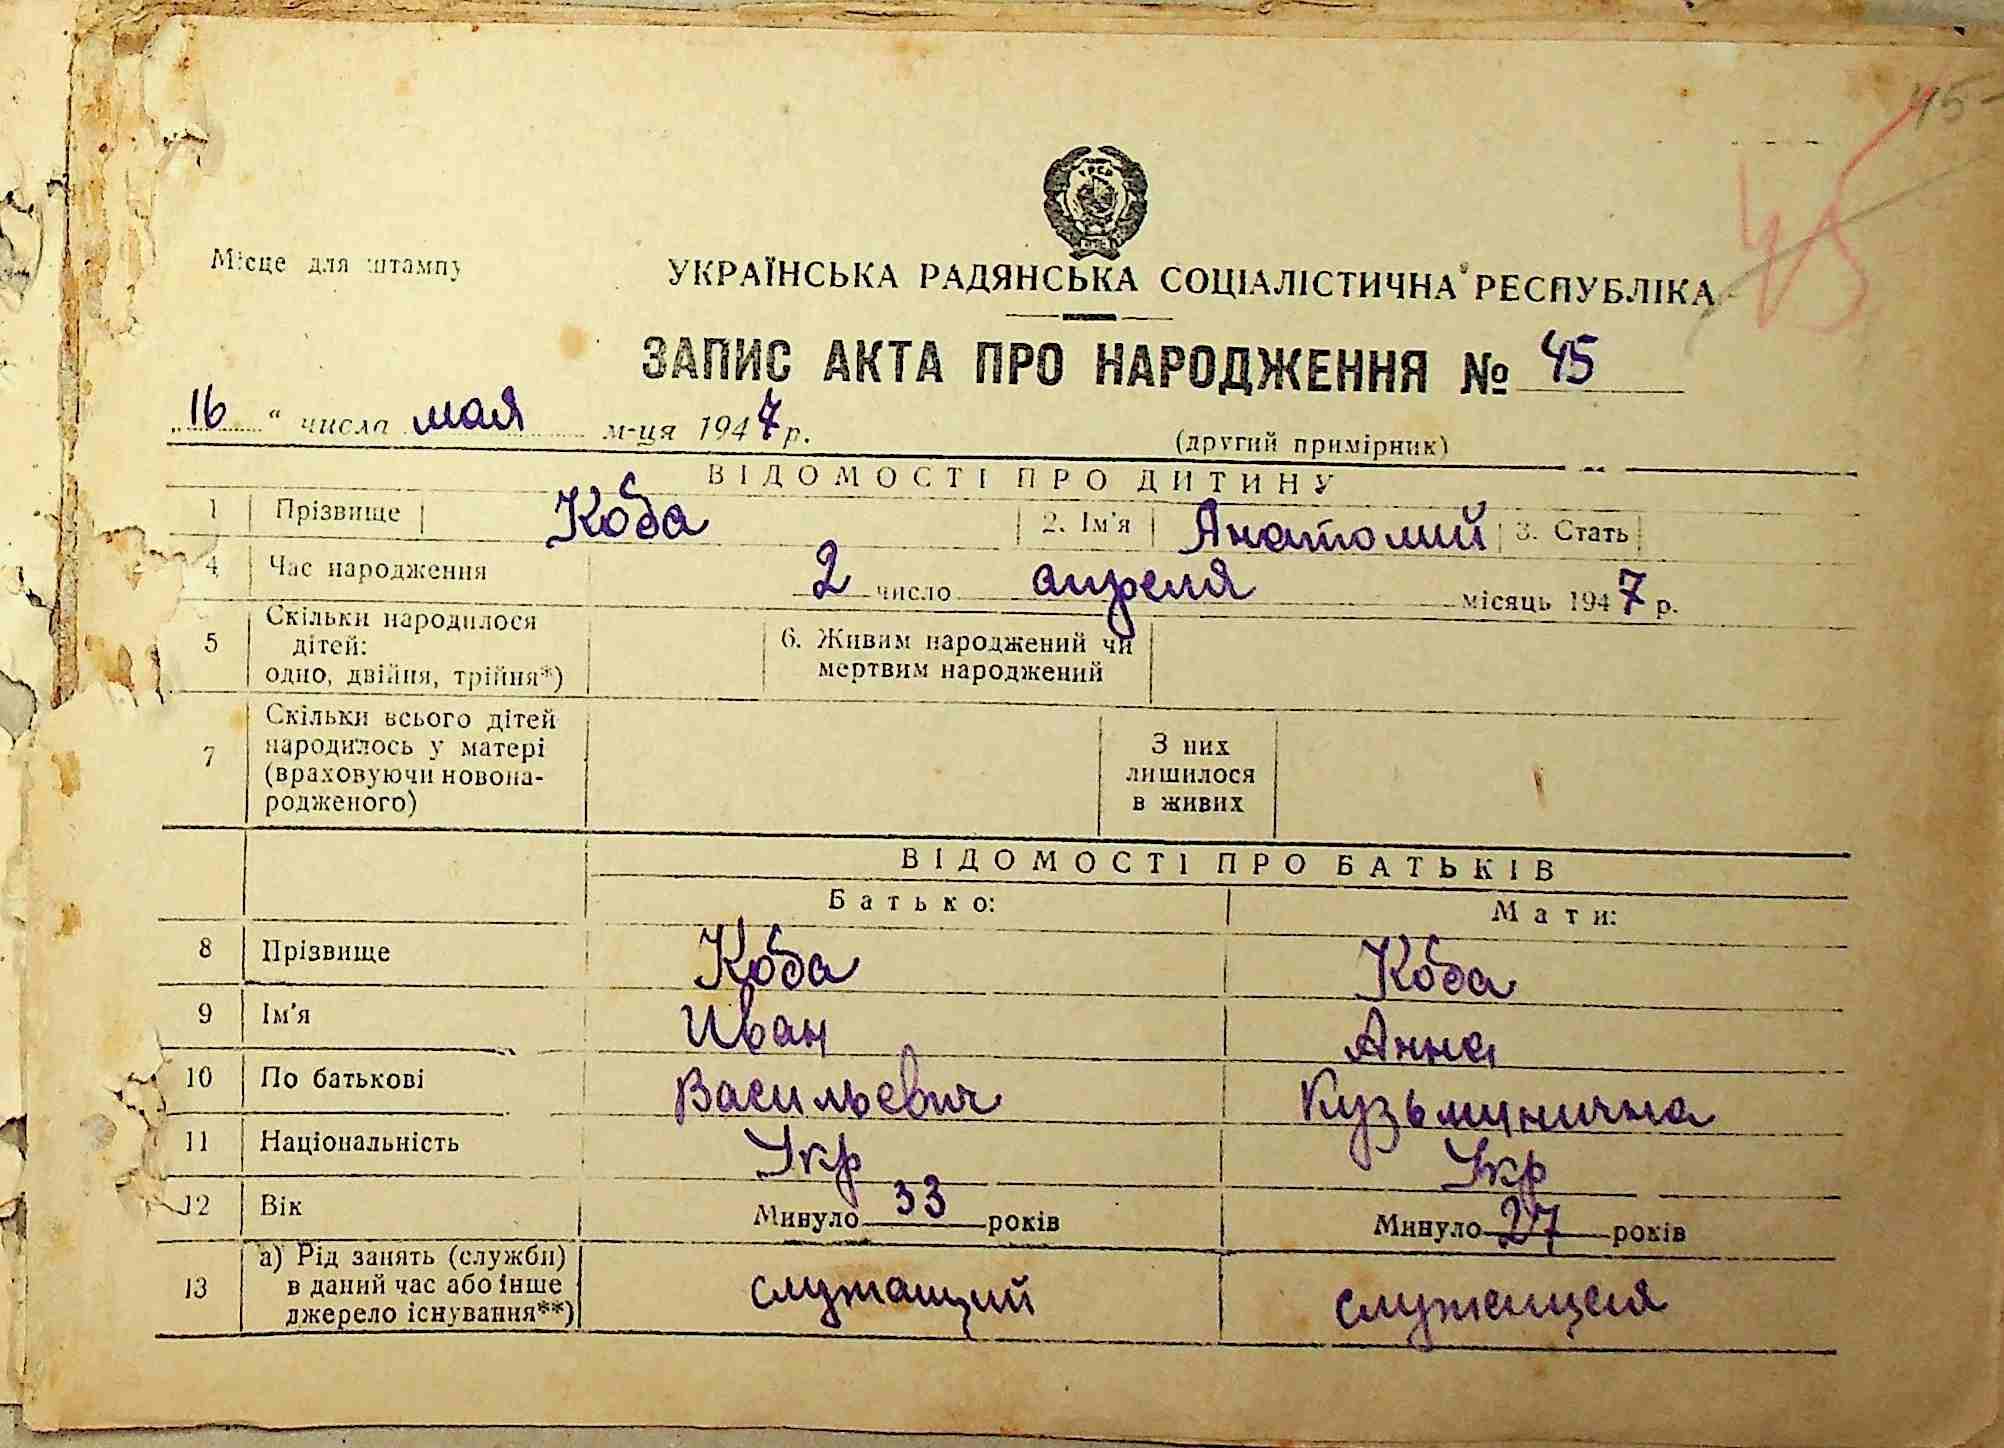 45-
45
УРСР
Місце для штампу
УКРАЇНСЬКА РАДЯНСЬКА СОЦІАЛІСТИЧНА РЕСПУБЛІКА
ЗАПИС АКТА ПРО НАРОДЖЕННЯ № 45
„16“ числа мая м-ця 1947 р.
(другий примірник)
ВІДОМОСТІ ПРО ДИТИНУ
1 Прізвище Коба 2. Ім'я Анатолий 3. Стать
4 Час народження 2 число апреля місяць 1947 р.
5 Скільки народилося дітей: одно, двійня, трійня*) 6. Живим народжений чи мертвим народжений
7 Скільки всього дітей народилось у матері (враховуючи новонародженого) З них лишилося в живих
ВІДОМОСТІ ПРО БАТЬКІВ
Батько: Мати:
8 Прізвище Коба Коба
9 Ім'я Иван Анна
10 По батькові Васильевич Кузьминична
11 Національність Укр Укр
12 Вік Минуло 33 років Минуло 27 років
13 а) Рід занять (служби) в даний час або інше джерело існування**) служащий служащая